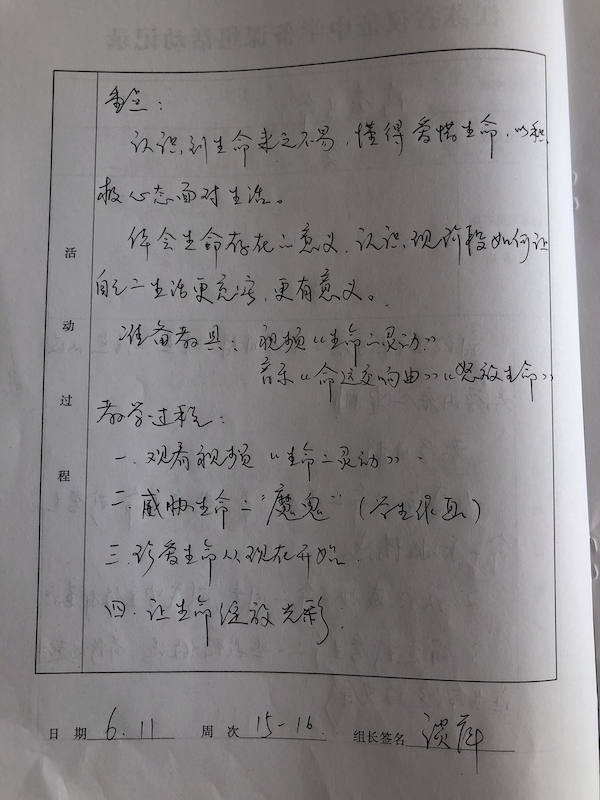 重点：
认识到生命来之不易，懂得爱惜生命，以积
极心态面对生活。
体会生命存在的意义，认识现阶段如何让
自己的生活更充实，更有意义。
准备教具：视频《生命的灵动》
音乐《命运交响曲》《怒放生命》
教学过程：
一、观看视频《生命的灵动》
二、威胁生命的"魔鬼"（学生
三、珍爱生命从现在开始
四、让生命绽放光彩
活动过程
日期 6.11 周次 15-16 组长签名